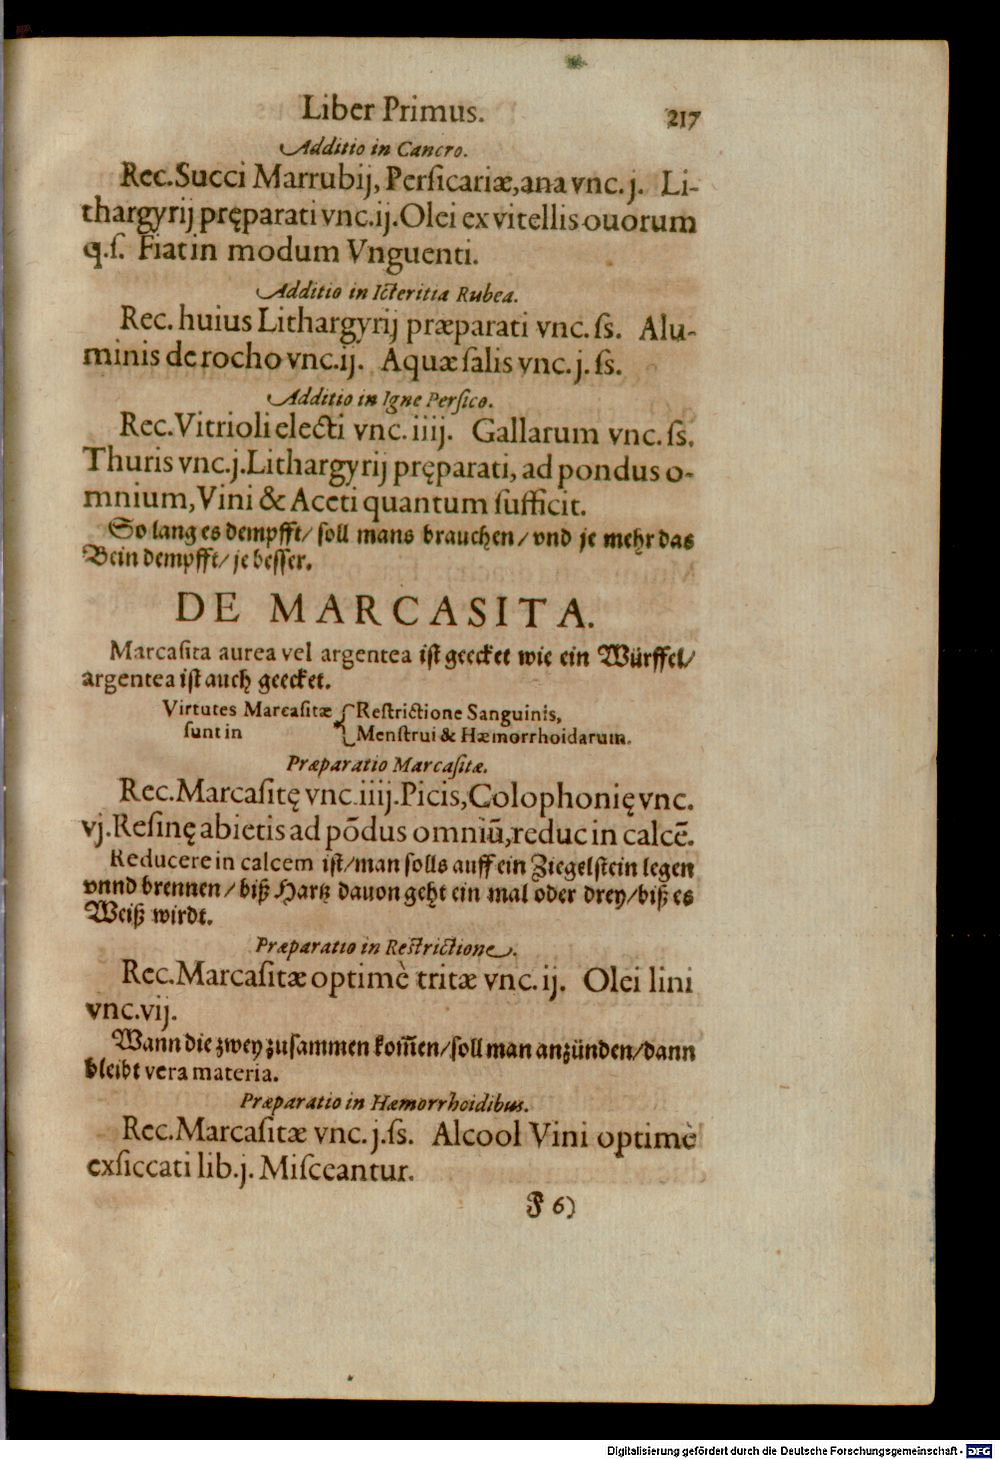 Liber Primus. 217
Additio in Cancro.
Rec. Succi Marrubij, Persicariæ, ana vnc. j. Li-
thargyrij pręparati vnc. ij. Olei ex vitellis ouorum
q. ſ. Fiat in modum Vnguenti.
Additio in Icteritia Rubea.
Rec. huius Lithargyrij præparati vnc. ſs. Alu-
minis de rocho vnc. ij. Aquæ ſalis vnc. j. ſs.
Additio in Igne Perſico.
Rec. Vitrioli electi vnc. iiij. Gallarum vnc. ſs.
Thuris vnc. j. Lithargyrij pręparati, ad pondus o-
mnium, Vini & Aceti quantum ſufficit.
So lang es dempfft/ ſoll mans brauchen/ vnd je mehr das
Bein dempfft/ je beſſer.
DE MARCASITA.
Marcaſita aurea vel argentea iſt geecket wie ein Würffel/
argentea iſt auch geecket.
Virtutes Marcaſitæ { Reſtrictione Sanguinis,
ſunt in { Menſtrui & Hæmorrhoidarum.
Præparatio Marcaſitæ.
Rec. Marcaſitę vnc. iiij. Picis, Colophonię vnc.
vj. Reſinę abietis ad põdus omniũ, reduc in calcẽ.
Reducere in calcem iſt/ man ſolls auff ein Ziegelſtein legen
vnnd brennen/ biß Hartz dauon geht ein mal oder drey/ biß es
Weiß wirdt.
Præparatio in Reſtrictione.
Rec. Marcaſitæ optimè tritæ vnc. ij. Olei lini
vnc. vij.
Wann die zwey zuſammen kom̃en/ ſoll man anzünden/ dann
bleibt vera materia.
Præparatio in Hæmorrhoidibus.
Rec. Marcaſitæ vnc. j. ſs. Alcool Vini optimè
exſiccati lib. j. Miſceantur.
Digitalisierung gefördert durch die Deutsche Forschungsgemeinschaft - DFG